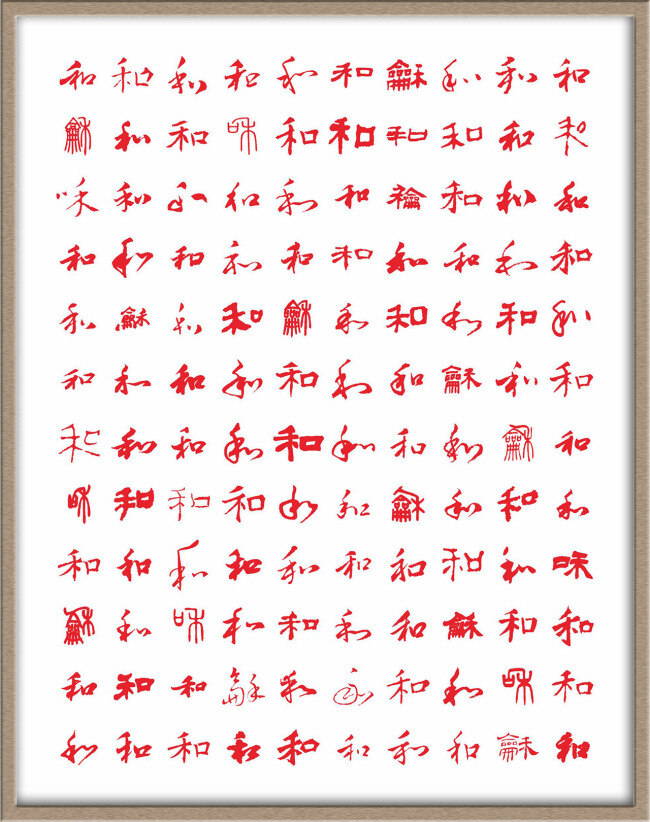 和和和和和和龢和和和
龢和和咊和和和和和和
咊和和和和和龢和和和
和和和和和和和和和和
和龢和和龢和和和和和
和和和和和和和龢和和
和和和和和和和和龢和
咊和和和和和龢和和和
和和和和和和和和和咊
龢和咊和和和和龢和和
和和和龢和和和和咊和
和和和和和和和和龢和